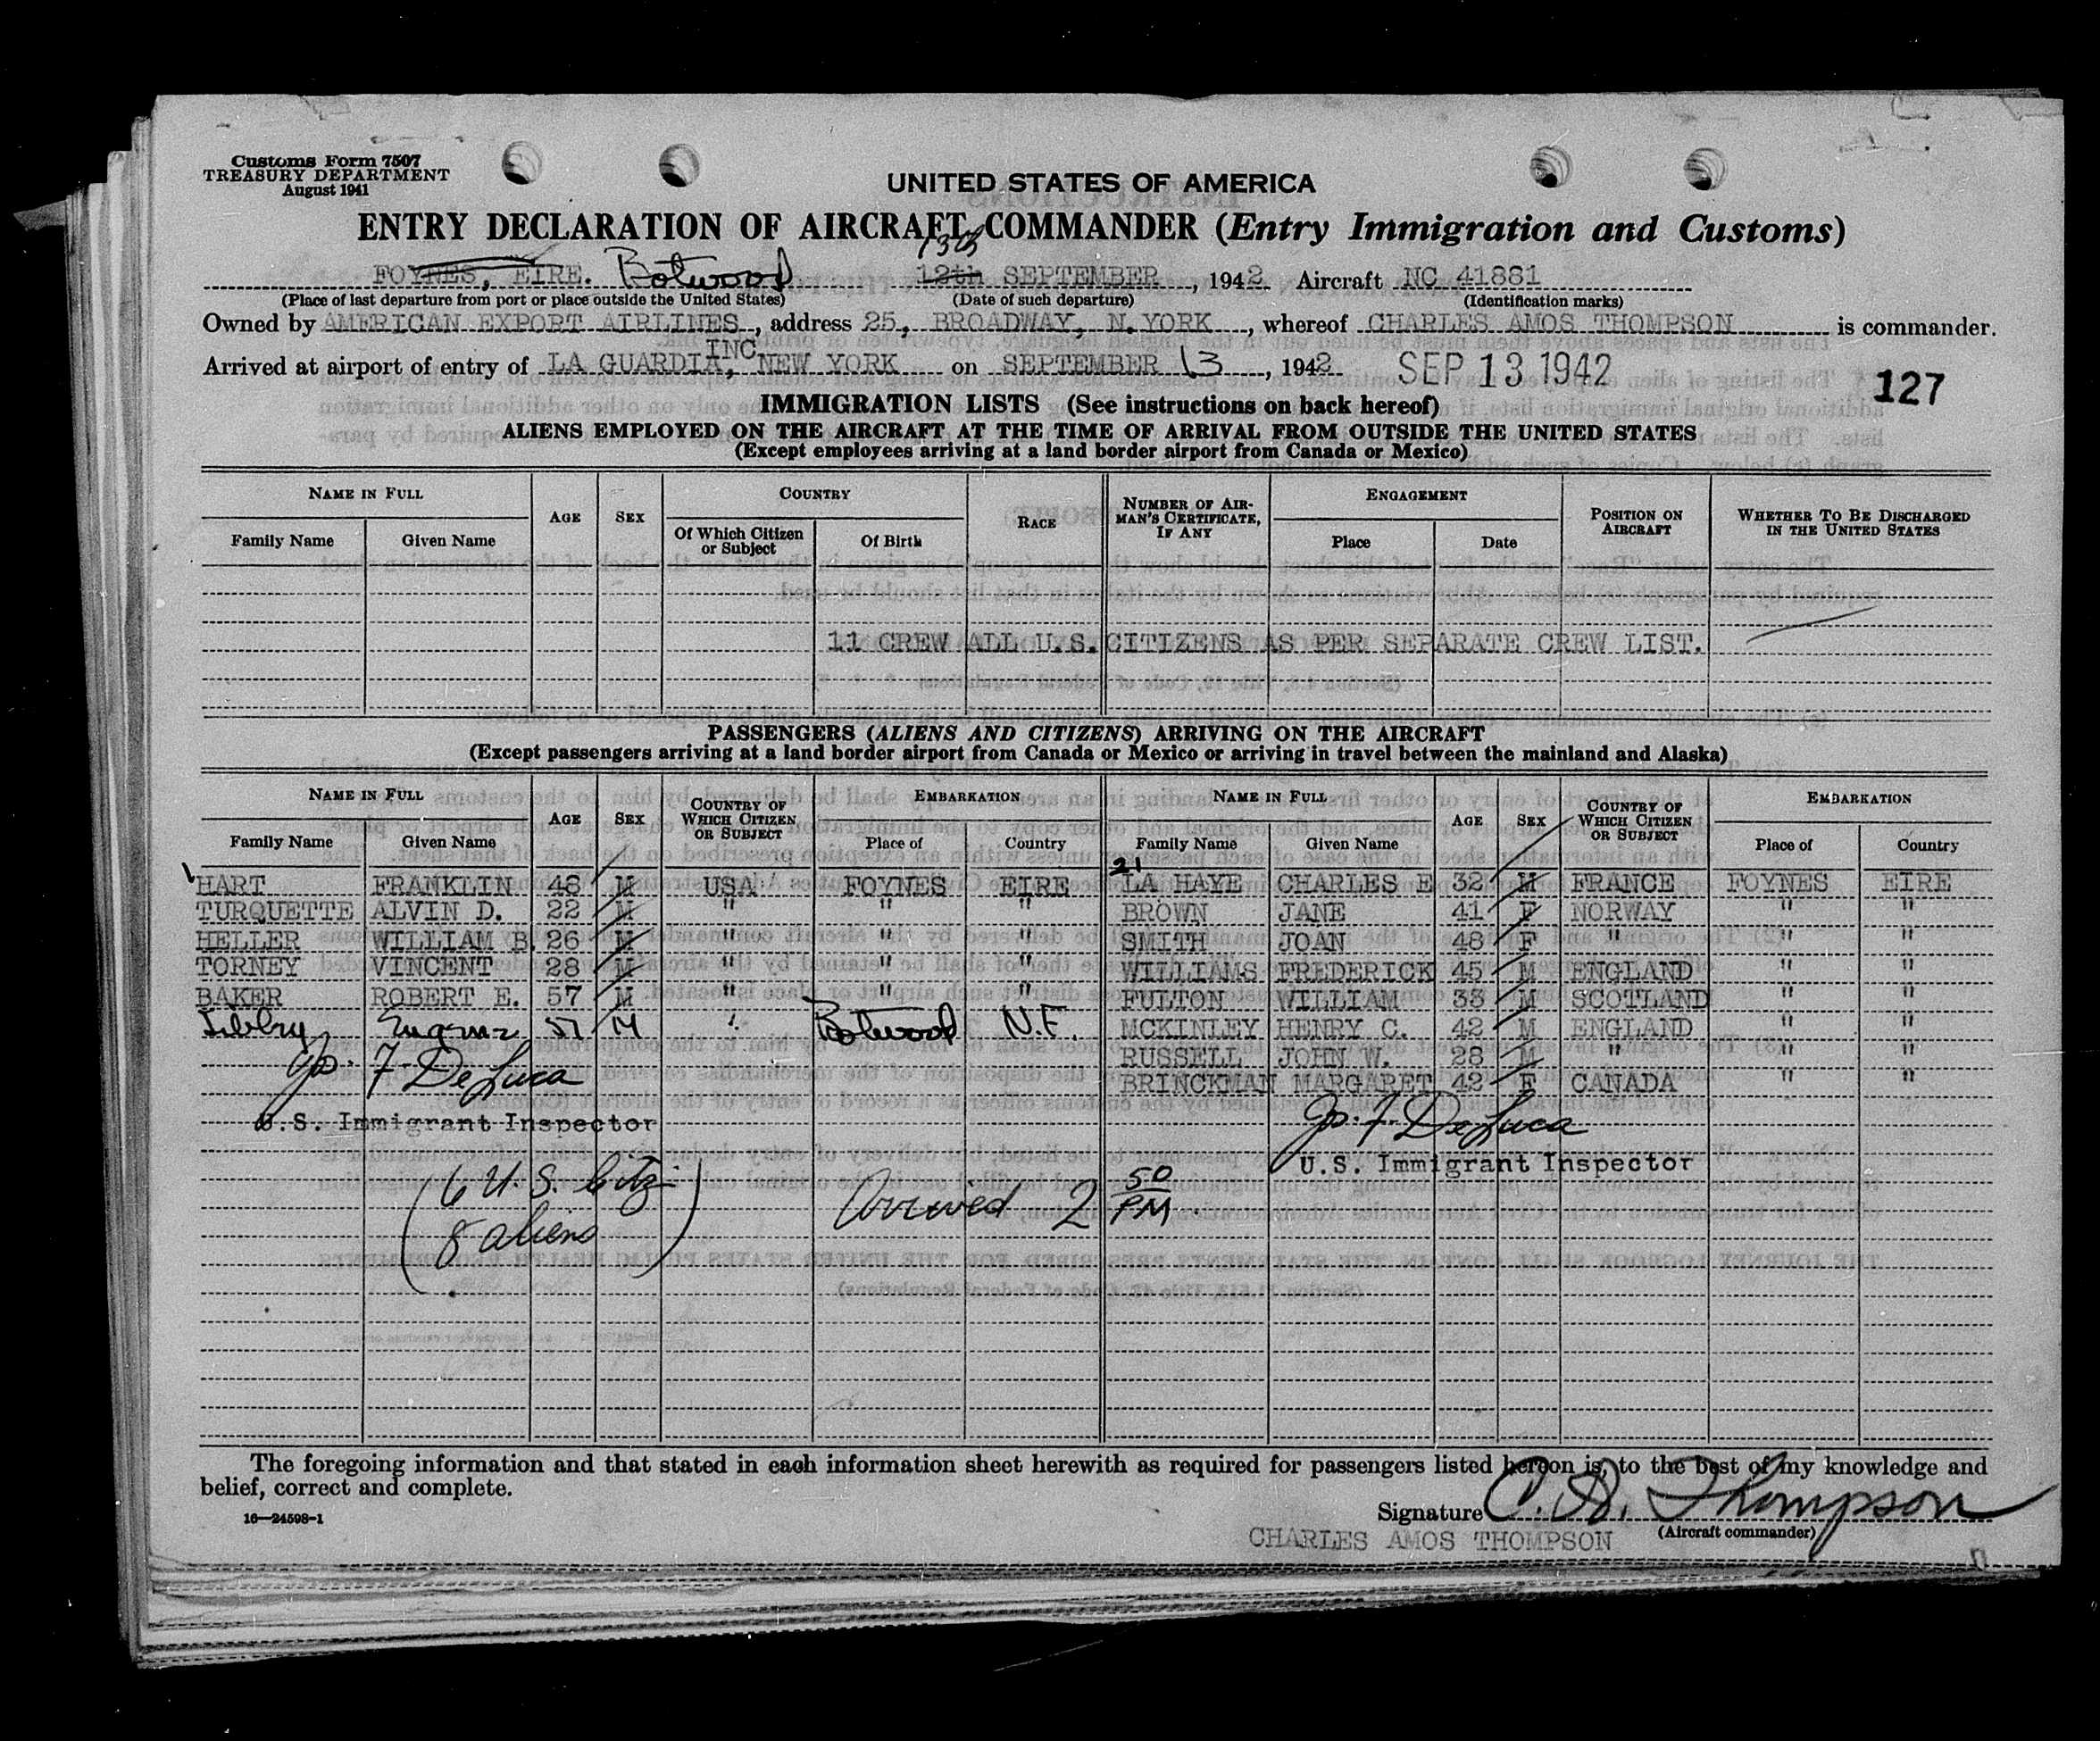 Customs Form 7507
TREASURY DEPARTMENT
August 1941
UNITED STATES OF AMERICA
ENTRY DECLARATION OF AIRCRAFT COMMANDER (Entry Immigration and Customs)
13th
FOYNES, EIRE. Botwood 12th SEPTEMBER, 1942 Aircraft NC 41881
(Place of last departure from port or place outside the United States) (Date of such departure) (Identification marks)
Owned by AMERICAN EXPORT AIRLINES, address 25, BROADWAY, N.YORK, whereof CHARLES AMOS THOMPSON is commander.
INC
Arrived at airport of entry of LA GUARDIA, NEW YORK on SEPTEMBER 13, 1942 SEP 13 1942
127
IMMIGRATION LISTS (See instructions on back hereof)
ALIENS EMPLOYED ON THE AIRCRAFT AT THE TIME OF ARRIVAL FROM OUTSIDE THE UNITED STATES
(Except employees arriving at a land border airport from Canada or Mexico)
NAME IN FULL AGE SEX COUNTRY RACE NUMBER OF AIRMAN'S CERTIFICATE, IF ANY ENGAGEMENT POSITION ON AIRCRAFT WHETHER TO BE DISCHARGED IN THE UNITED STATES
Family Name Given Name Of Which Citizen or Subject Of Birth Place Date
11 CREW ALL U.S. CITIZENS AS PER SEPARATE CREW LIST.
PASSENGERS (ALIENS AND CITIZENS) ARRIVING ON THE AIRCRAFT
(Except passengers arriving at a land border airport from Canada or Mexico or arriving in travel between the mainland and Alaska)
NAME IN FULL AGE SEX COUNTRY OF WHICH CITIZEN OR SUBJECT EMBARKATION NAME IN FULL AGE SEX COUNTRY OF WHICH CITIZEN OR SUBJECT EMBARKATION
Family Name Given Name Place of Country Family Name Given Name Place of Country
21
HART FRANKLIN 48 M USA FOYNES EIRE LA HAYE CHARLES E 32 M FRANCE FOYNES EIRE
TURQUETTE ALVIN D. 22 M " " " BROWN JANE 41 F NORWAY " "
HELLER WILLIAM B. 26 M " " " SMITH JOAN 48 F " " "
TORNEY VINCENT 28 M " " " WILLIAMS FREDERICK 45 M ENGLAND " "
BAKER ROBERT E. 57 M " " " FULTON WILLIAM 33 M SCOTLAND " "
Libby Eugene 57 M " Botwood N.F. MCKINLEY HENRY C. 42 M ENGLAND " "
RUSSELL JOHN W. 28 M " " "
BRINCKMAN MARGARET 42 F CANADA " "
Jp. F. DeLuca
U.S. Immigrant Inspector
Jp. F. DeLuca
U.S. Immigrant Inspector
(6 U.S. Citz
8 aliens)
Arrived 2 50 PM.
The foregoing information and that stated in each information sheet herewith as required for passengers listed hereon is, to the best of my knowledge and
belief, correct and complete.
Signature C. A. Thompson
(Aircraft commander)
16—24598-1
CHARLES AMOS THOMPSON